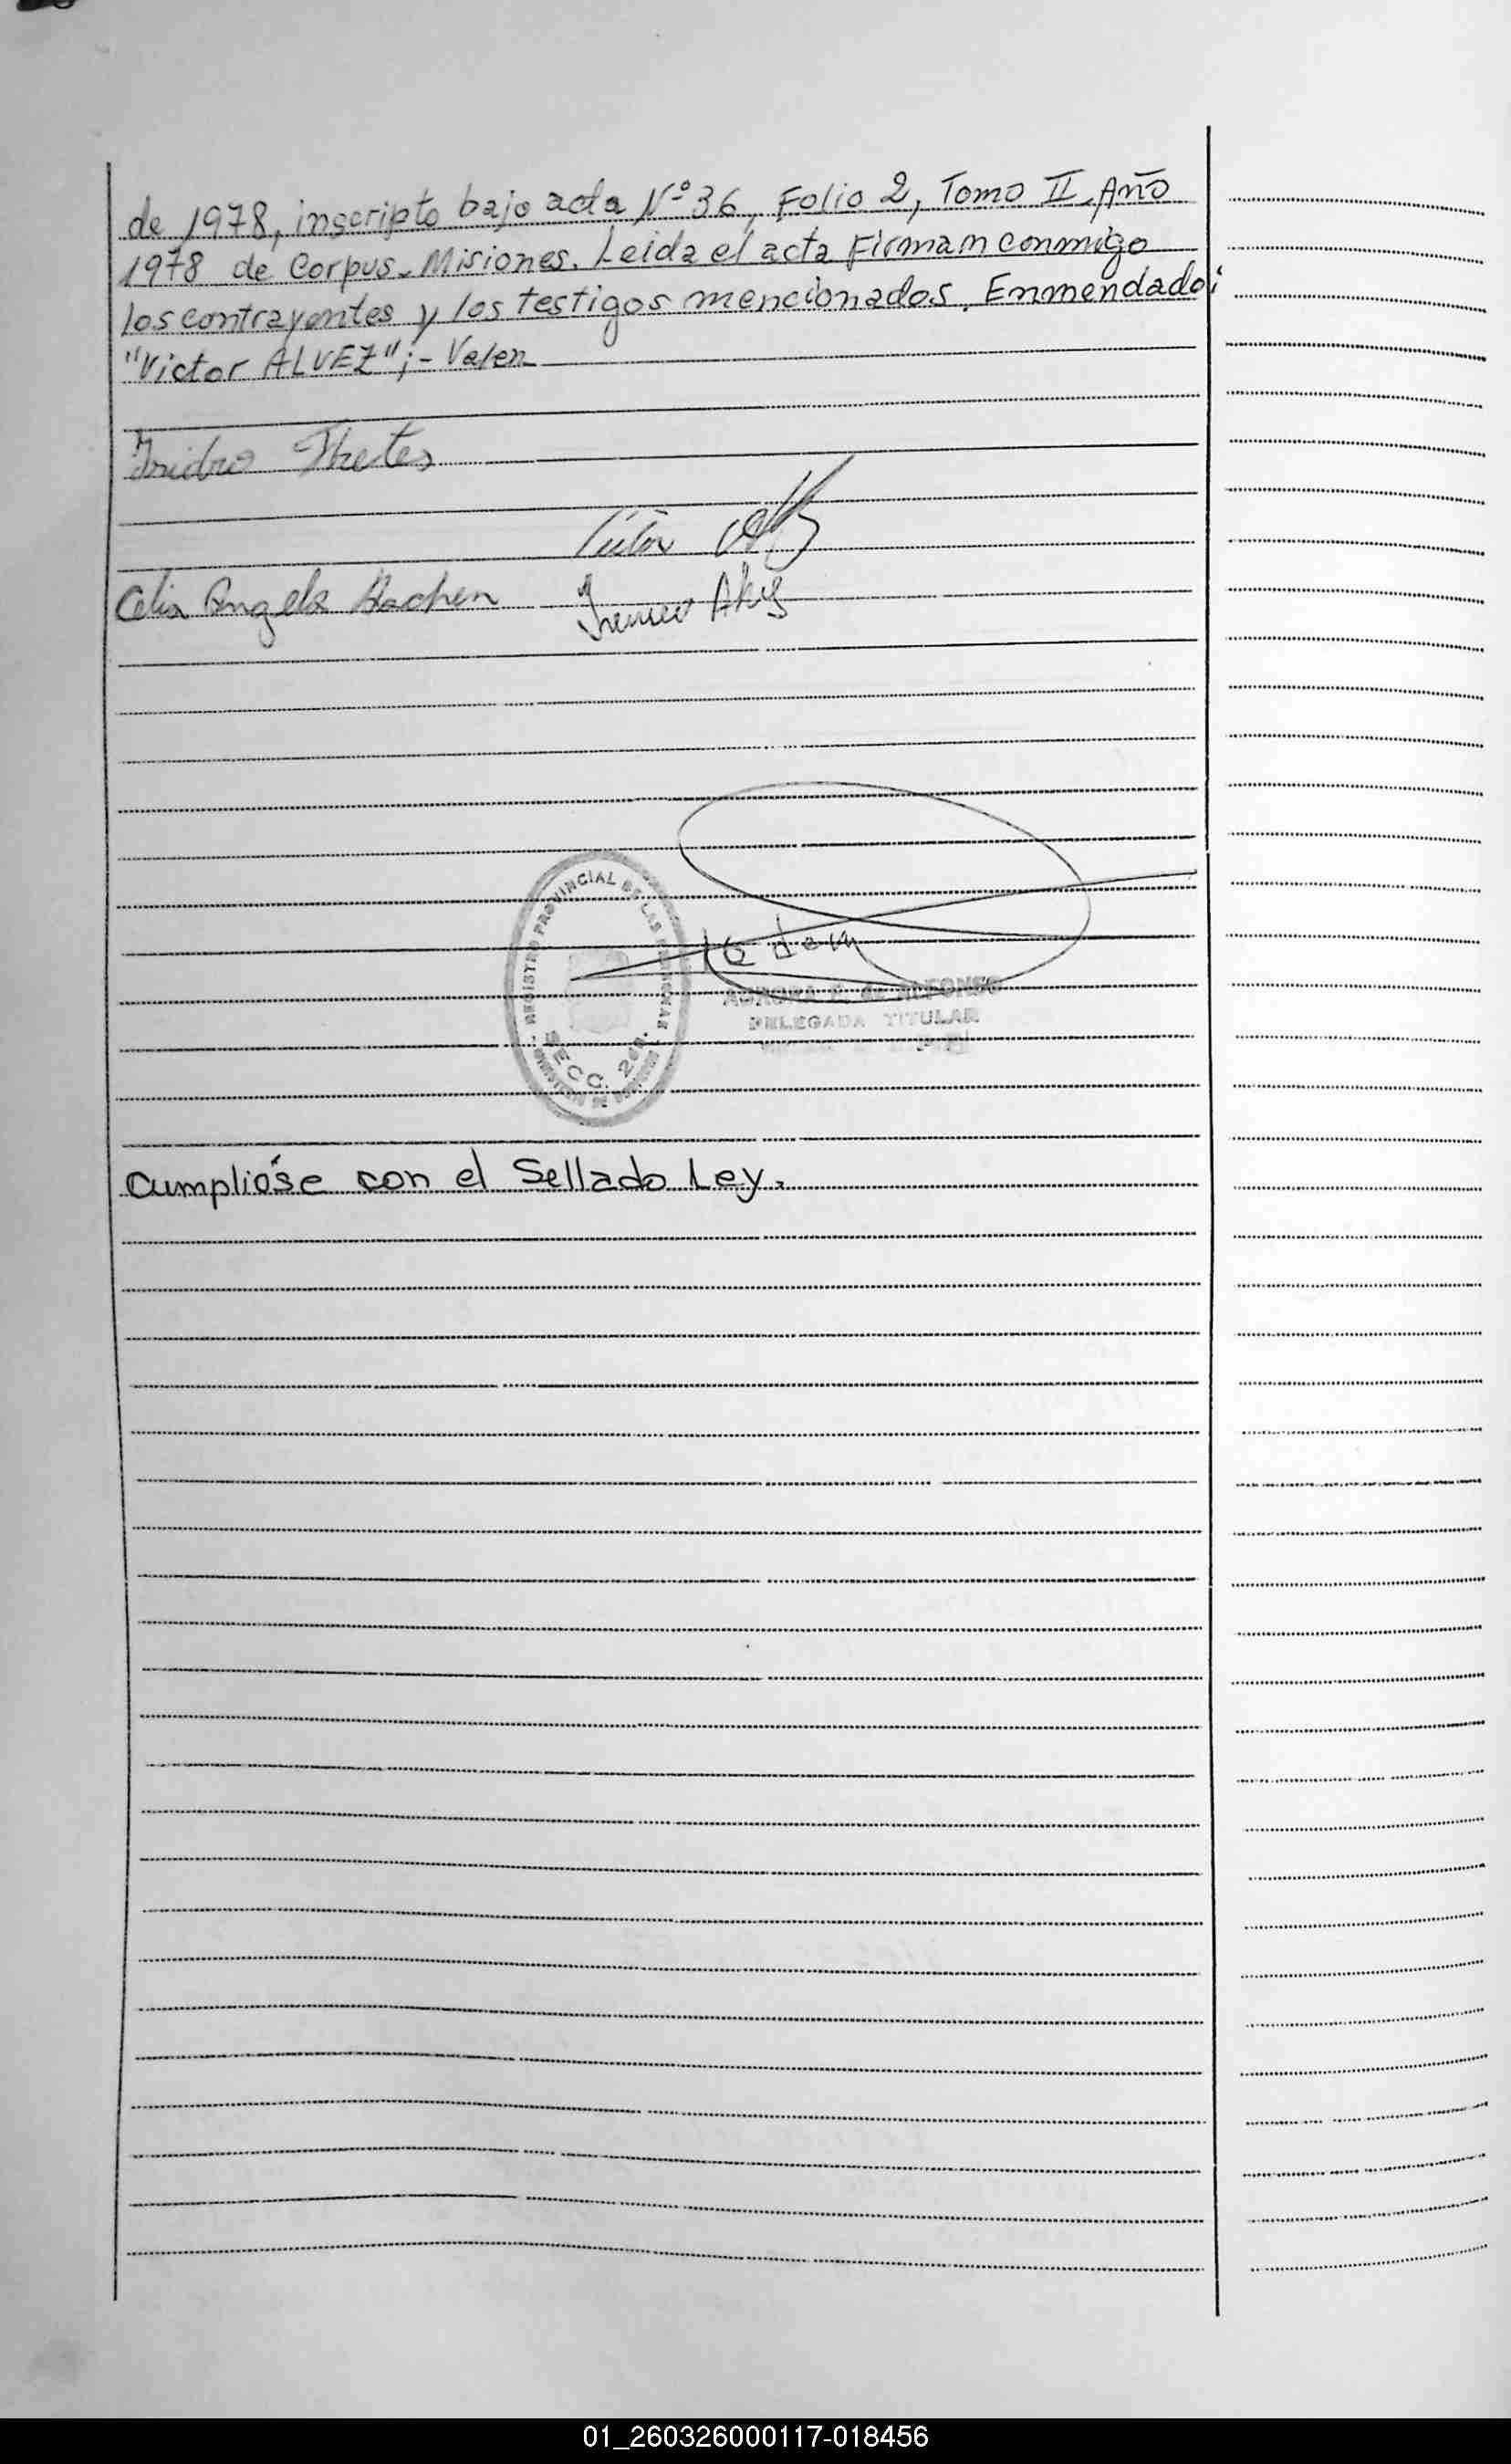 de 1978, inscripto bajo acta Nº 36, Folio 2, Tomo II. Año
1978 de Corpus. Misiones. Leida el acta Firman conmigo
los contrayentes y los testigos mencionados. Enmendado:
"Victor ALVEZ";- Valen
Isidro
Victor
Celia Angela
REGISTRO PROVINCIAL DE LAS PERSONAS
SECC. 2da.
AURORA E. de ALFONSO
DELEGADA TITULAR
Cumplióse con el Sellado Ley.
01_260326000117-018456